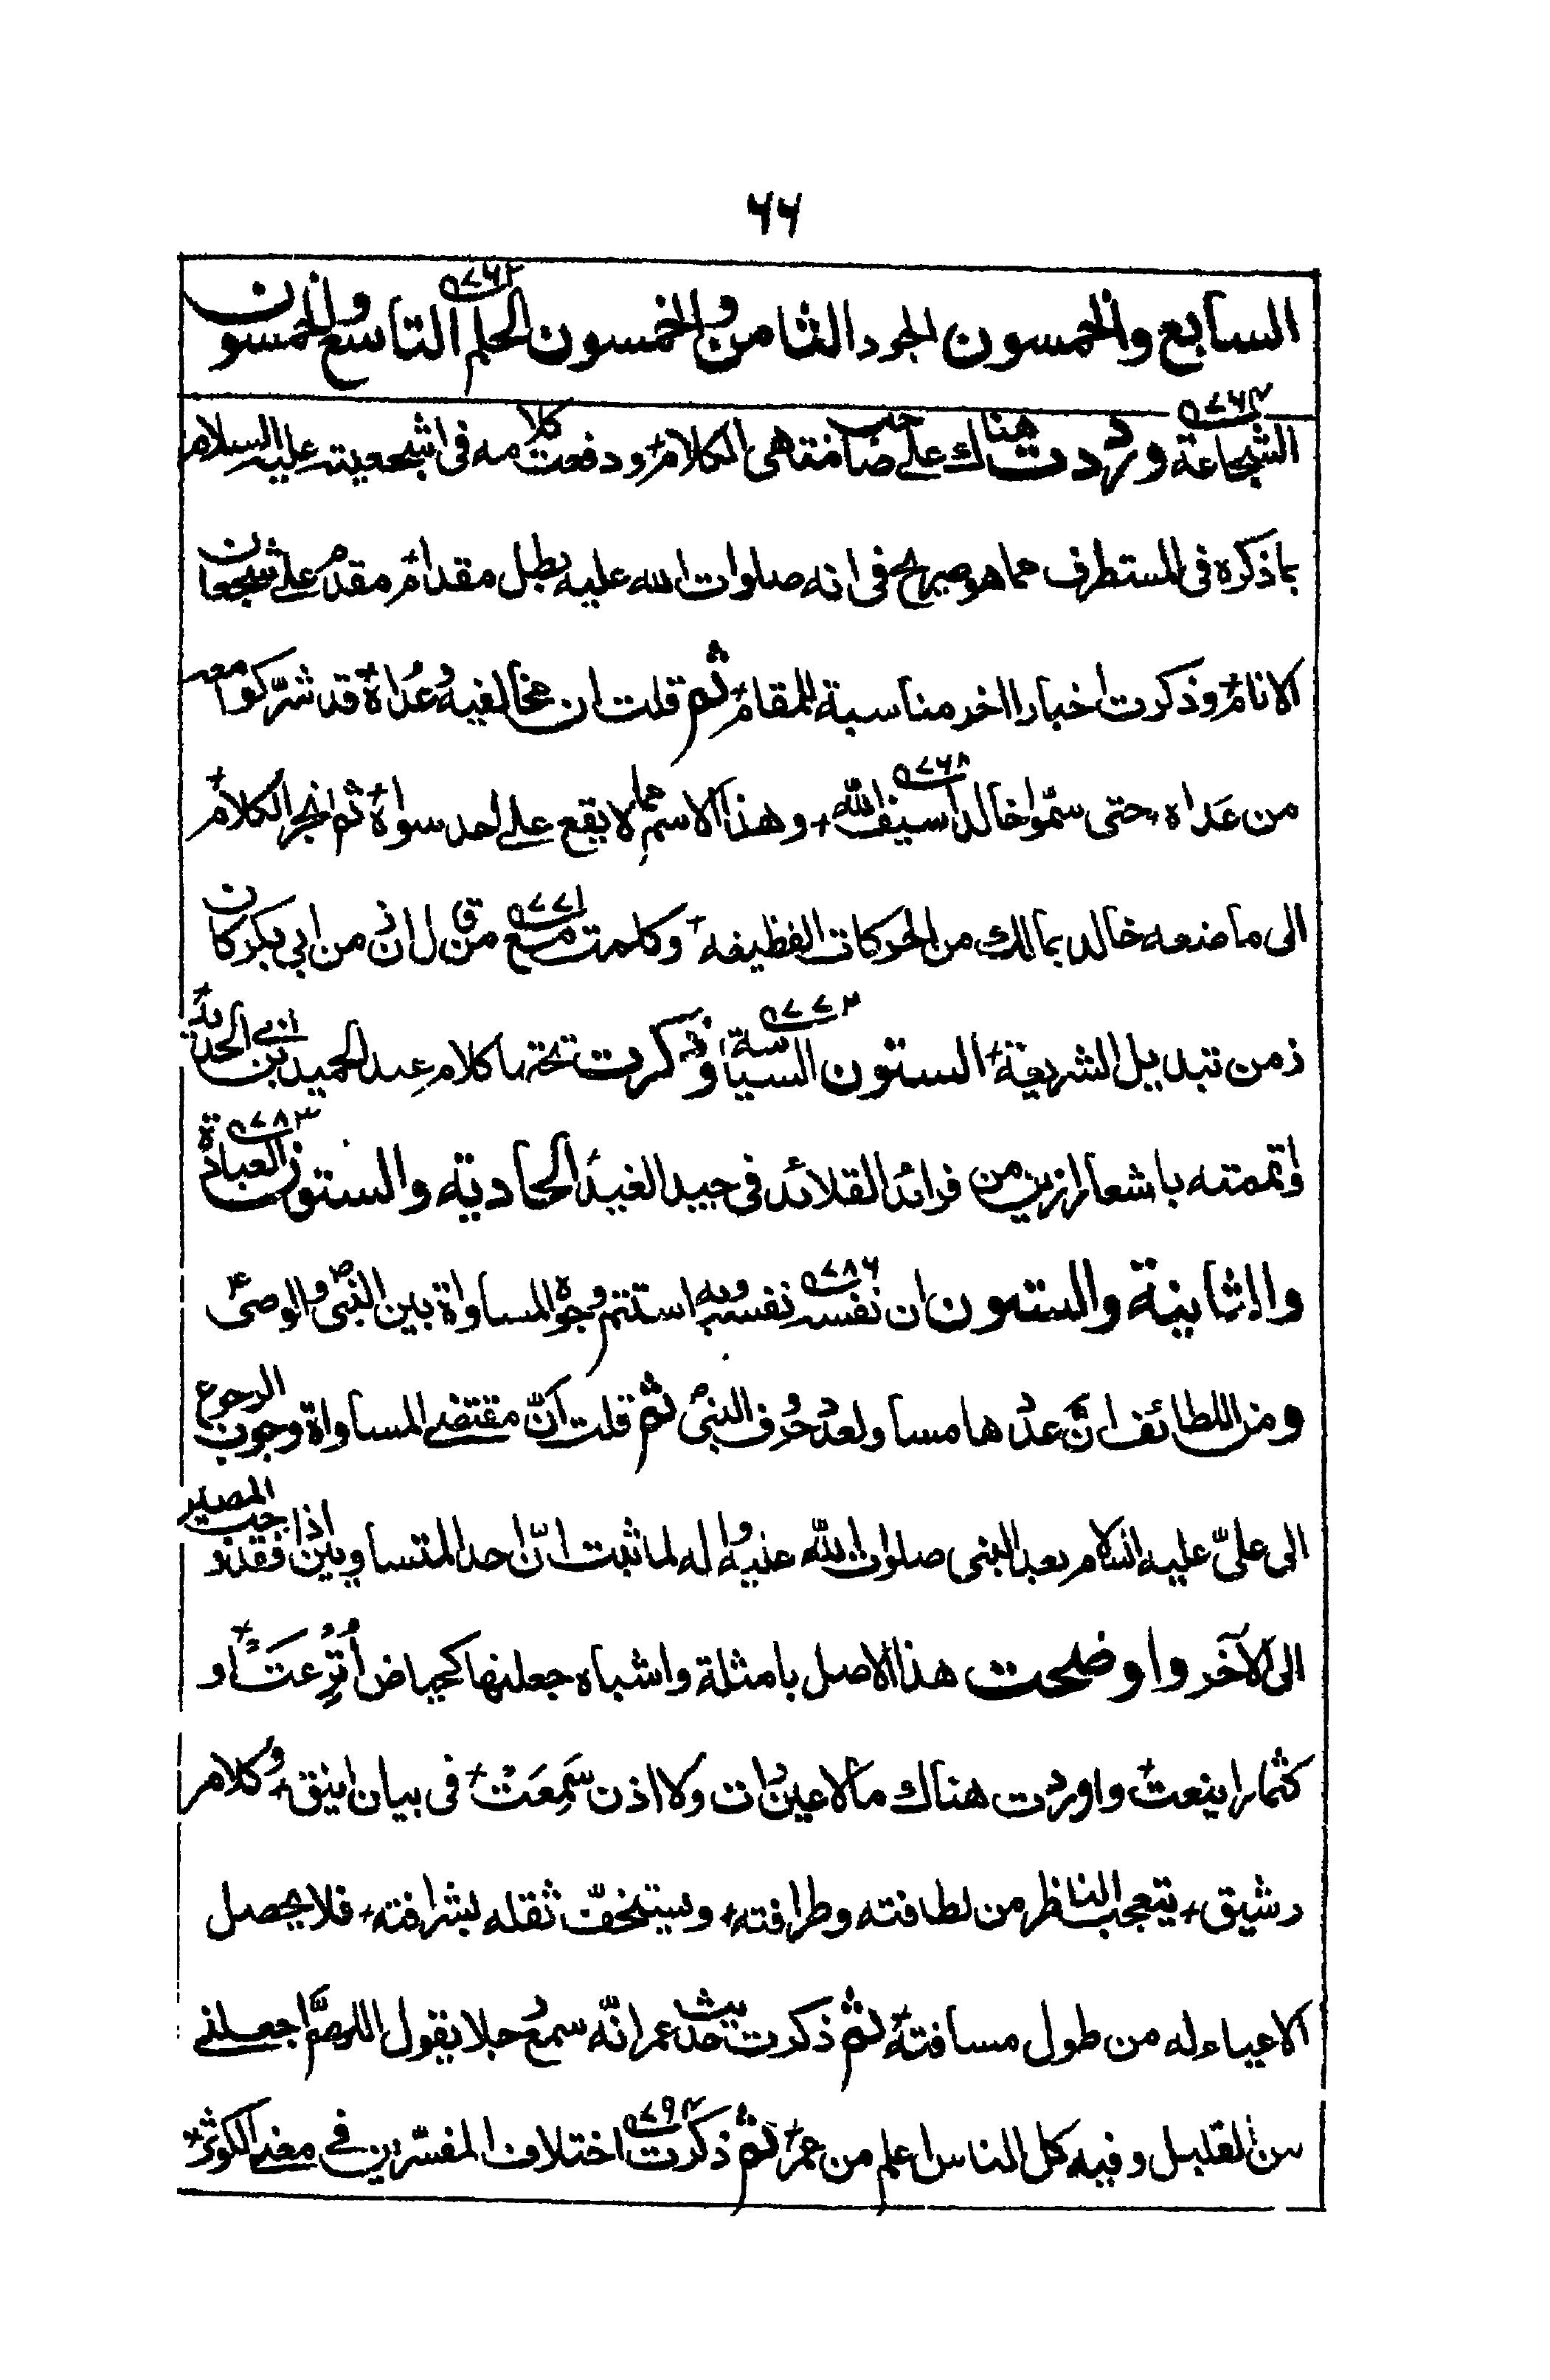 ٦٦
السابع والخمسون الجود الثامن والخمسون الحلم التاسع والخمسون
٥٧٦٢
الشجاعة ورددت هناك على صاحب منتهى الكلام ودفعت كلامه فى اشجعيته عليه السلام
بما ذكره فى المستطرف مما هو صريح فى انه صلوات الله عليه بطل مقدام مقدم على شجعان
الانام وذكرت اخبارا اخر مناسبة للمقام ثم قلت ان مخالفيه وعداه قد شرّكوا معه
من عداه حتى سمّوا خالدا سيف الله وهذا الاسم مما لا يقع على احد سواه ثم انجر الكلام
٥٧٦٨
الى ما صنعه خالد بمالك من الحركات الفظيعه وكلمت مع من قال ان من ابى بكر كان
٥٧٧١
زمن تبديل الشريعة الستون السياسة وذكرت تحتها كلام عبد الحميد بن ابى الحديد
٥٧٧٣
واتممته باشعار ازرين من فرائد القلائد فى جيد الغيد الحادية والستون العبادة
٥٧٨٣
والثانية والستون ان نفسه نفسه وبه استتم وجوه المساواة بين النبى والوصى
٥٧٨٦
ومن اللطائف ان عددها مساو لعدد حروف النبى ثم قلت انّ مقتضى المساواة وجوب الرجوع
الى علىّ عليه السلام بعد النبى صلوات الله عليه واله لما ثبت انّ احد المتساويين اذا فقد وجب المصير
الى الآخر واوضحت هذا الاصل بامثلة واشباه جعلنها كحياض أُترعت او
كثمار اينعت واوردت هناك ما لا عين رات ولا اذن سمعت فى بيان انيق وكلام
رشيق يتعجب الناظر من لطافته وطرافته ويستخفّ ثقله بشرافته فلا يحصل
الاعياء له من طول مسافته ثم ذكرت حديث عمر انّه سمع رجلا يقول اللهمّ اجعلنى
من القليل وفيه كل الناس اعلم من عمر ثم ذكرت اختلاف المفسّرين فى معنى الكوثر